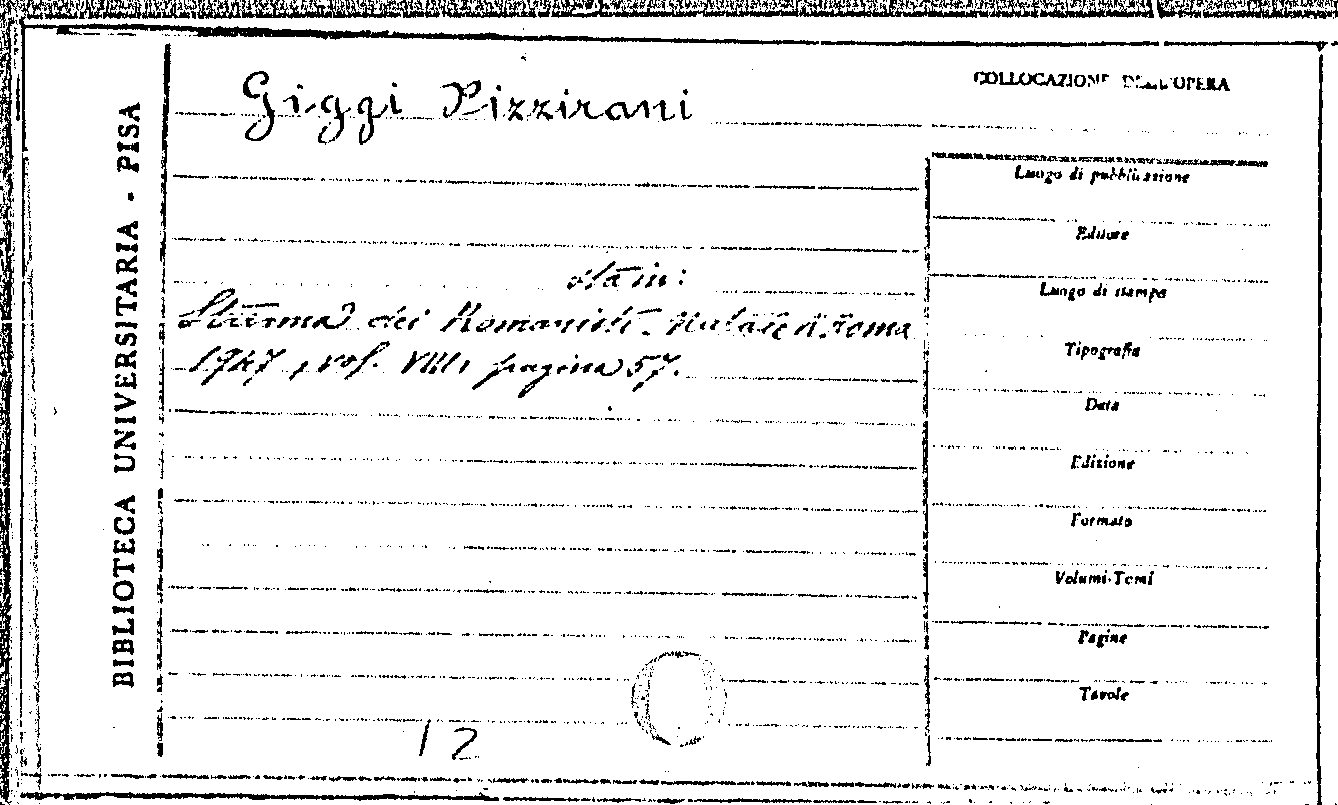 BIBLIOTECA UNIVERSITARIA - PISA
Giggi Pizzirani
sta in:
Strenna dei Romanisti - Natale di Roma
1947, vol. VIII, pagina 57.
12
COLLOCAZIONE DELL'OPERA
Luogo di pubblicazione
Editore
Luogo di stampa
Tipografia
Data
Edizione
Formato
Volumi-Tomi
Pagine
Tavole